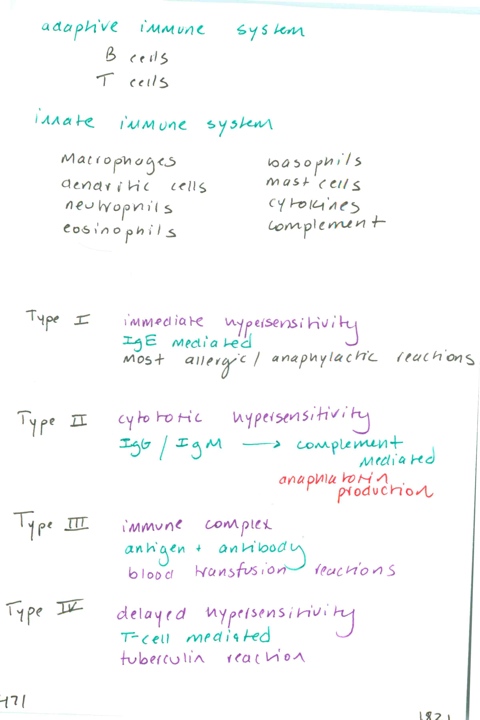 adaptive immune system
B cells
T cells
innate immune system
Macrophages
dendritic cells
neutrophils
eosinophils
basophils
mast cells
cytokines
complement
Type I immediate hypersensitivity
IgE mediated
most allergic / anaphylactic reactions
Type II cytotoxic hypersensitivity
IgG / IgM → complement
mediated
anaphlatoxin
production
Type III immune complex
antigen + antibody
blood transfusion reactions
Type IV delayed hypersensitivity
T-cell mediated
tuberculin reaction
471